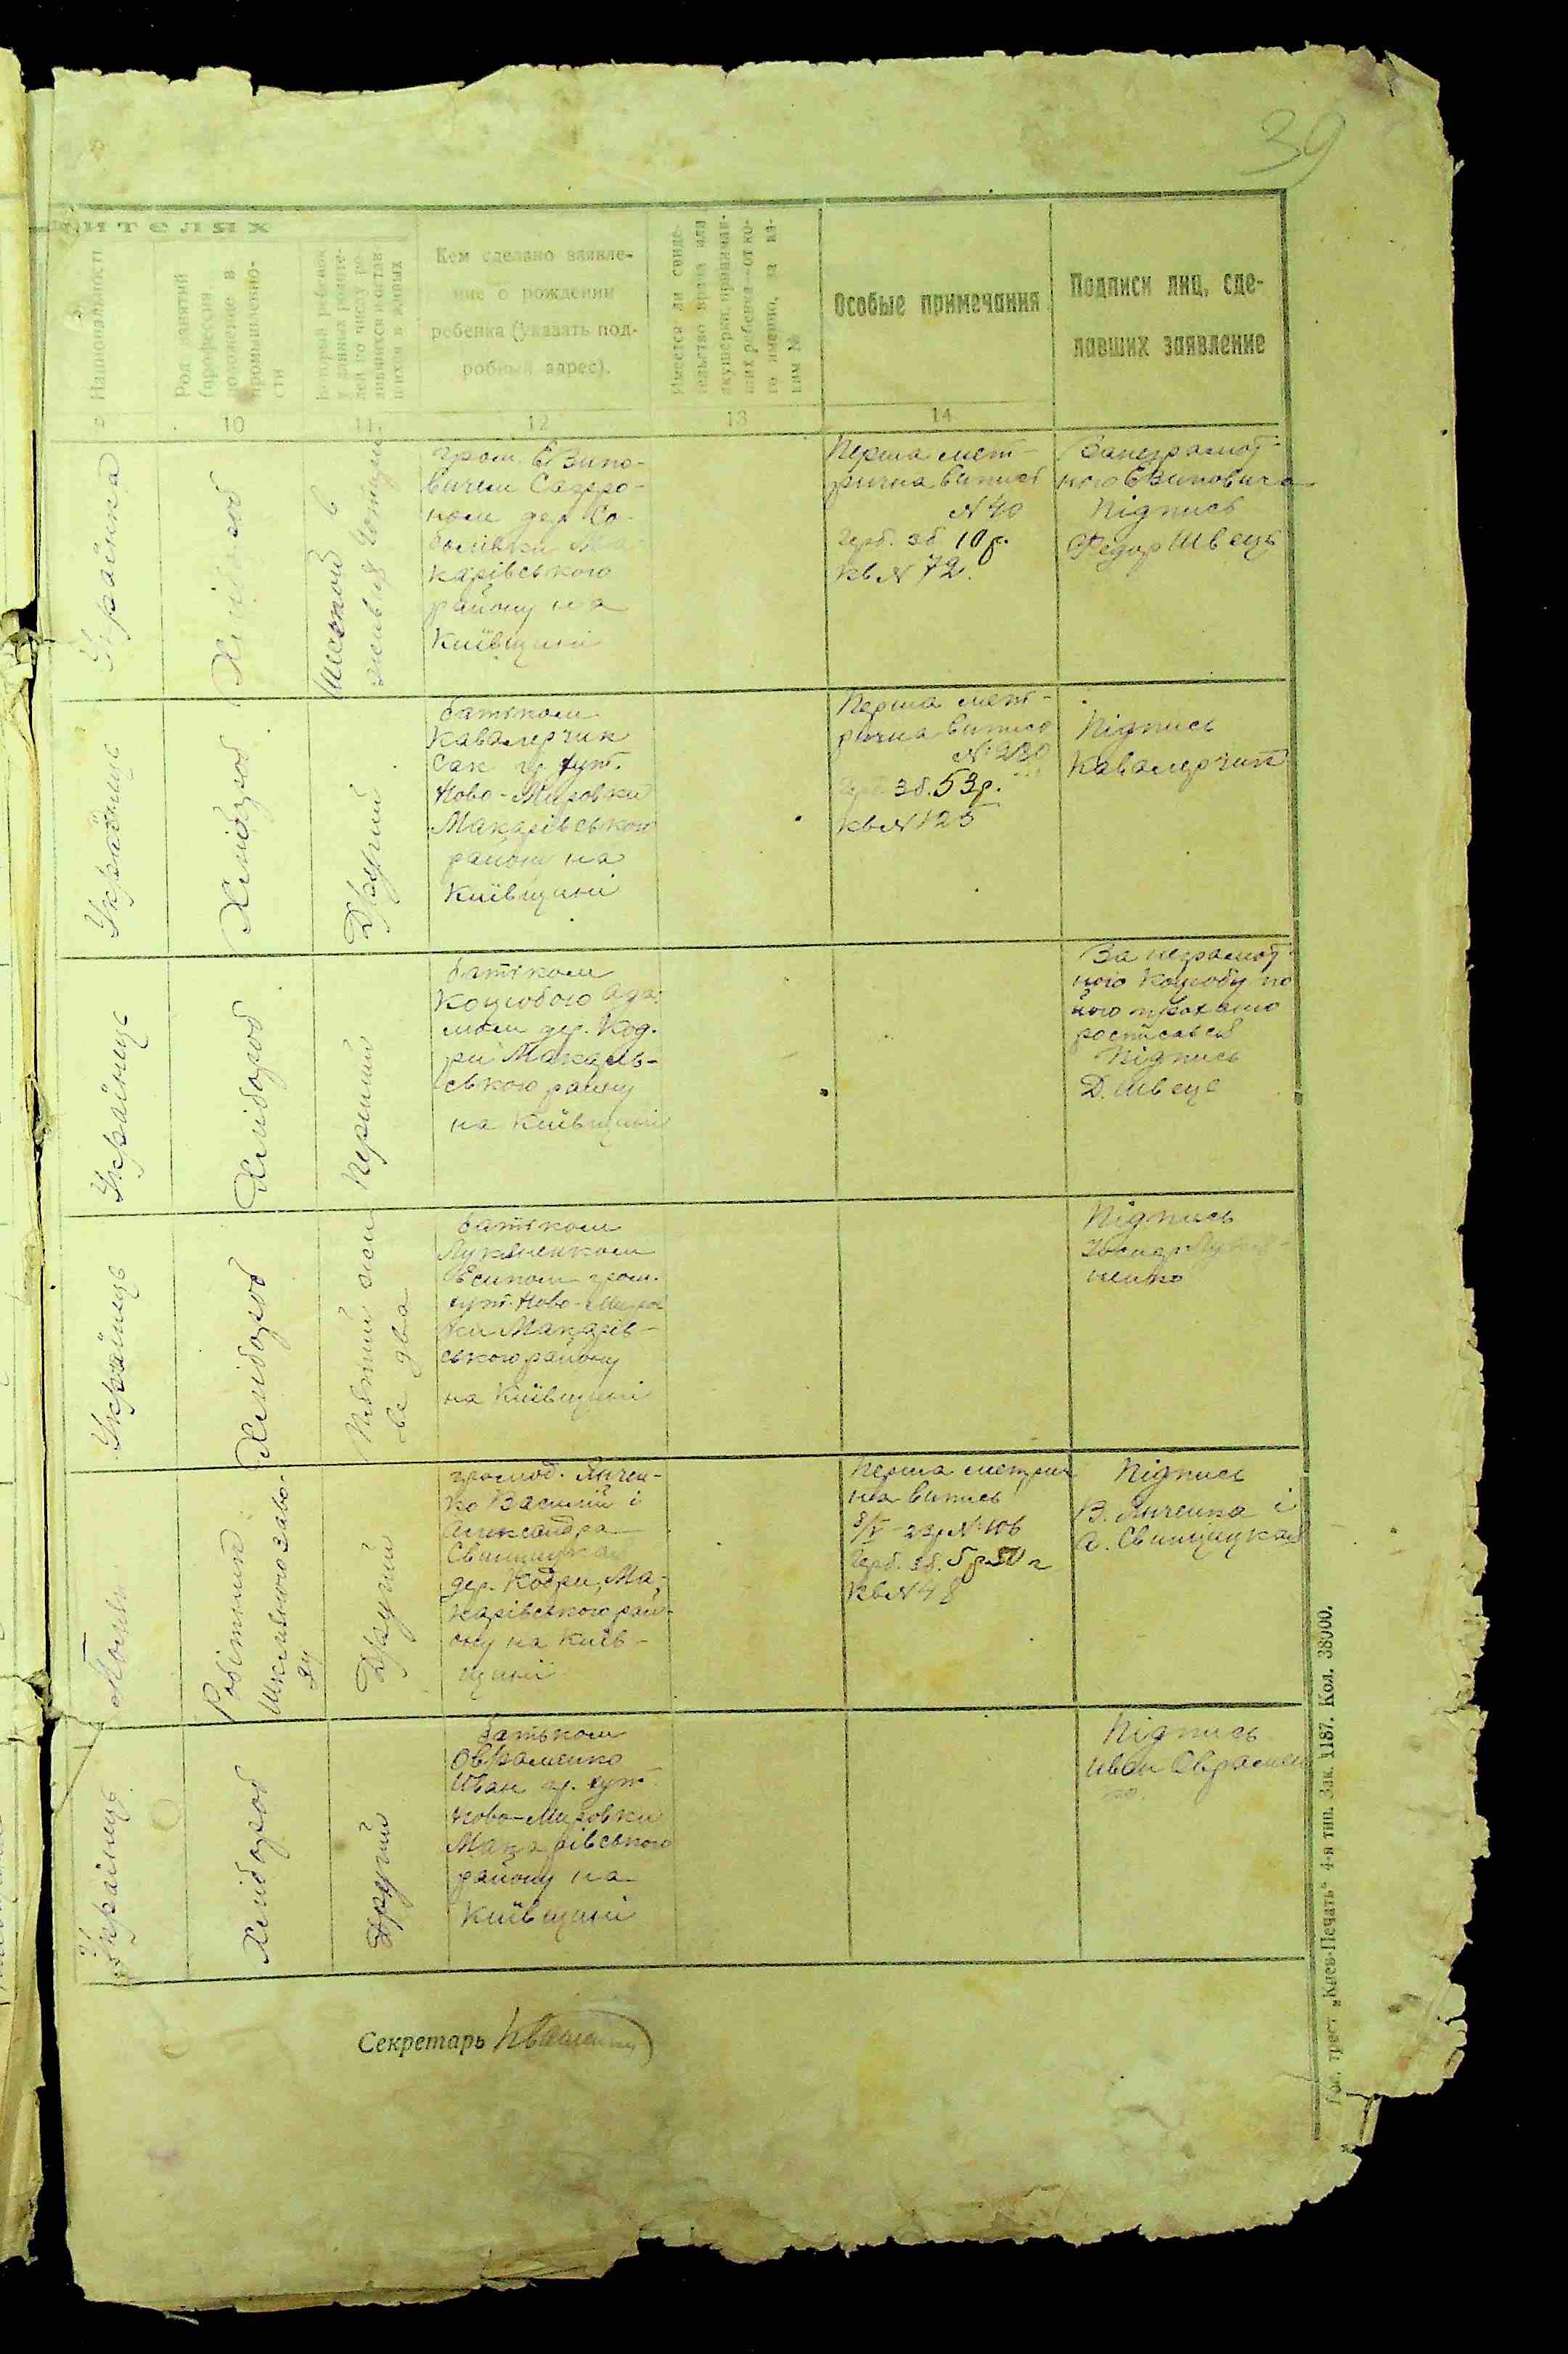 39
ителях
Национальность
Род занятий
(профессия,
положение в
промышленно-
сти
Который ребенок
у данных родите-
лей по числу ро-
дившихся и остав
шихся в живых
Кем сделано заявле-
ние о рождении
ребенка (указать под-
робный адрес).
Имеется ли свиде-
тельство врача или
акушерки, принимав-
ших ребенка—от ко-
го именно, за ка-
ким №
Особые примечания
Подписи лиц, сде-
лавших заявление
9
10
11
12
13
14
Українка
Хлібороб
Шестой в
живых четыре
гром. Е Вино-
вичем
дер. Со-
болівки Ма-
карівського
району на
Київщині
Перша мет-
рична випись
№ 40
Герб. зб. 10 р.
кв № 72.
За неграмот-
ного ЕВиновича
Підпись
Федор Швець
Українець
Хлібороб
Другий
батьком
Кавалерчик
Сак гр. хут.
Ново-Мировки
Макарівського
району на
Київщині
Перша мет-
рична випись
№ 230
Герб. зб. 53р.
кв № 125
Підпись
Кавалерчик
Українець
Хлібороб
Перший
батьком
Коцюбою Ада-
мом дер. Код-
ри Макарів-
ського району
на Київщині
За неграмот-
ного Коцюбу по
його проханню
росписався
Підпись
Д. Швець
Українець
Хлібороб
Пятий жи
ве два
батьком
Лукяненком
Есипом гром.
хут. Ново-Миров
ки Макарів-
ського району
на Київщині
Підпись
Українець
Робітник
Шклянного заво-
ду
Другий
громад. Янчен-
ко Василий і
Александра
Свинцицкая
дер. Кодри, Ма-
карівського рай-
ону на Київ-
щині
Перша метрич
на випись
8/V - 23р № 106
Герб. зб. 5р. 50 к
кв № 48
Підпись
В. Янченка і
А. Свинцицкая
Хлібороб
Другий
батьком
Овраменко
Иван гр. хут.
Ново-Мировки
Макарівського
району на
Київщині
Підпись
Иван Оврамен
ко.
Секретарь
Гос. трест „Киев-Печать“ 4-я тип. Зак. 1187. Кол. 38000.